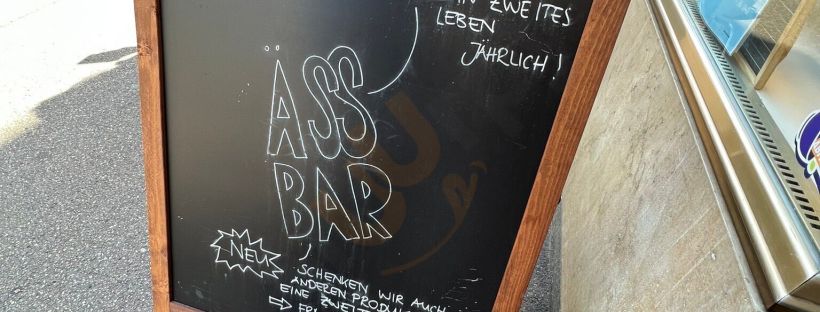 ZWEITES
LEBEN
JÄHRLICH!
ÄSS
BAR
NEU
SCHENKEN WIR AUCH
ANDEREN PRODUK
EINE ZWEITE